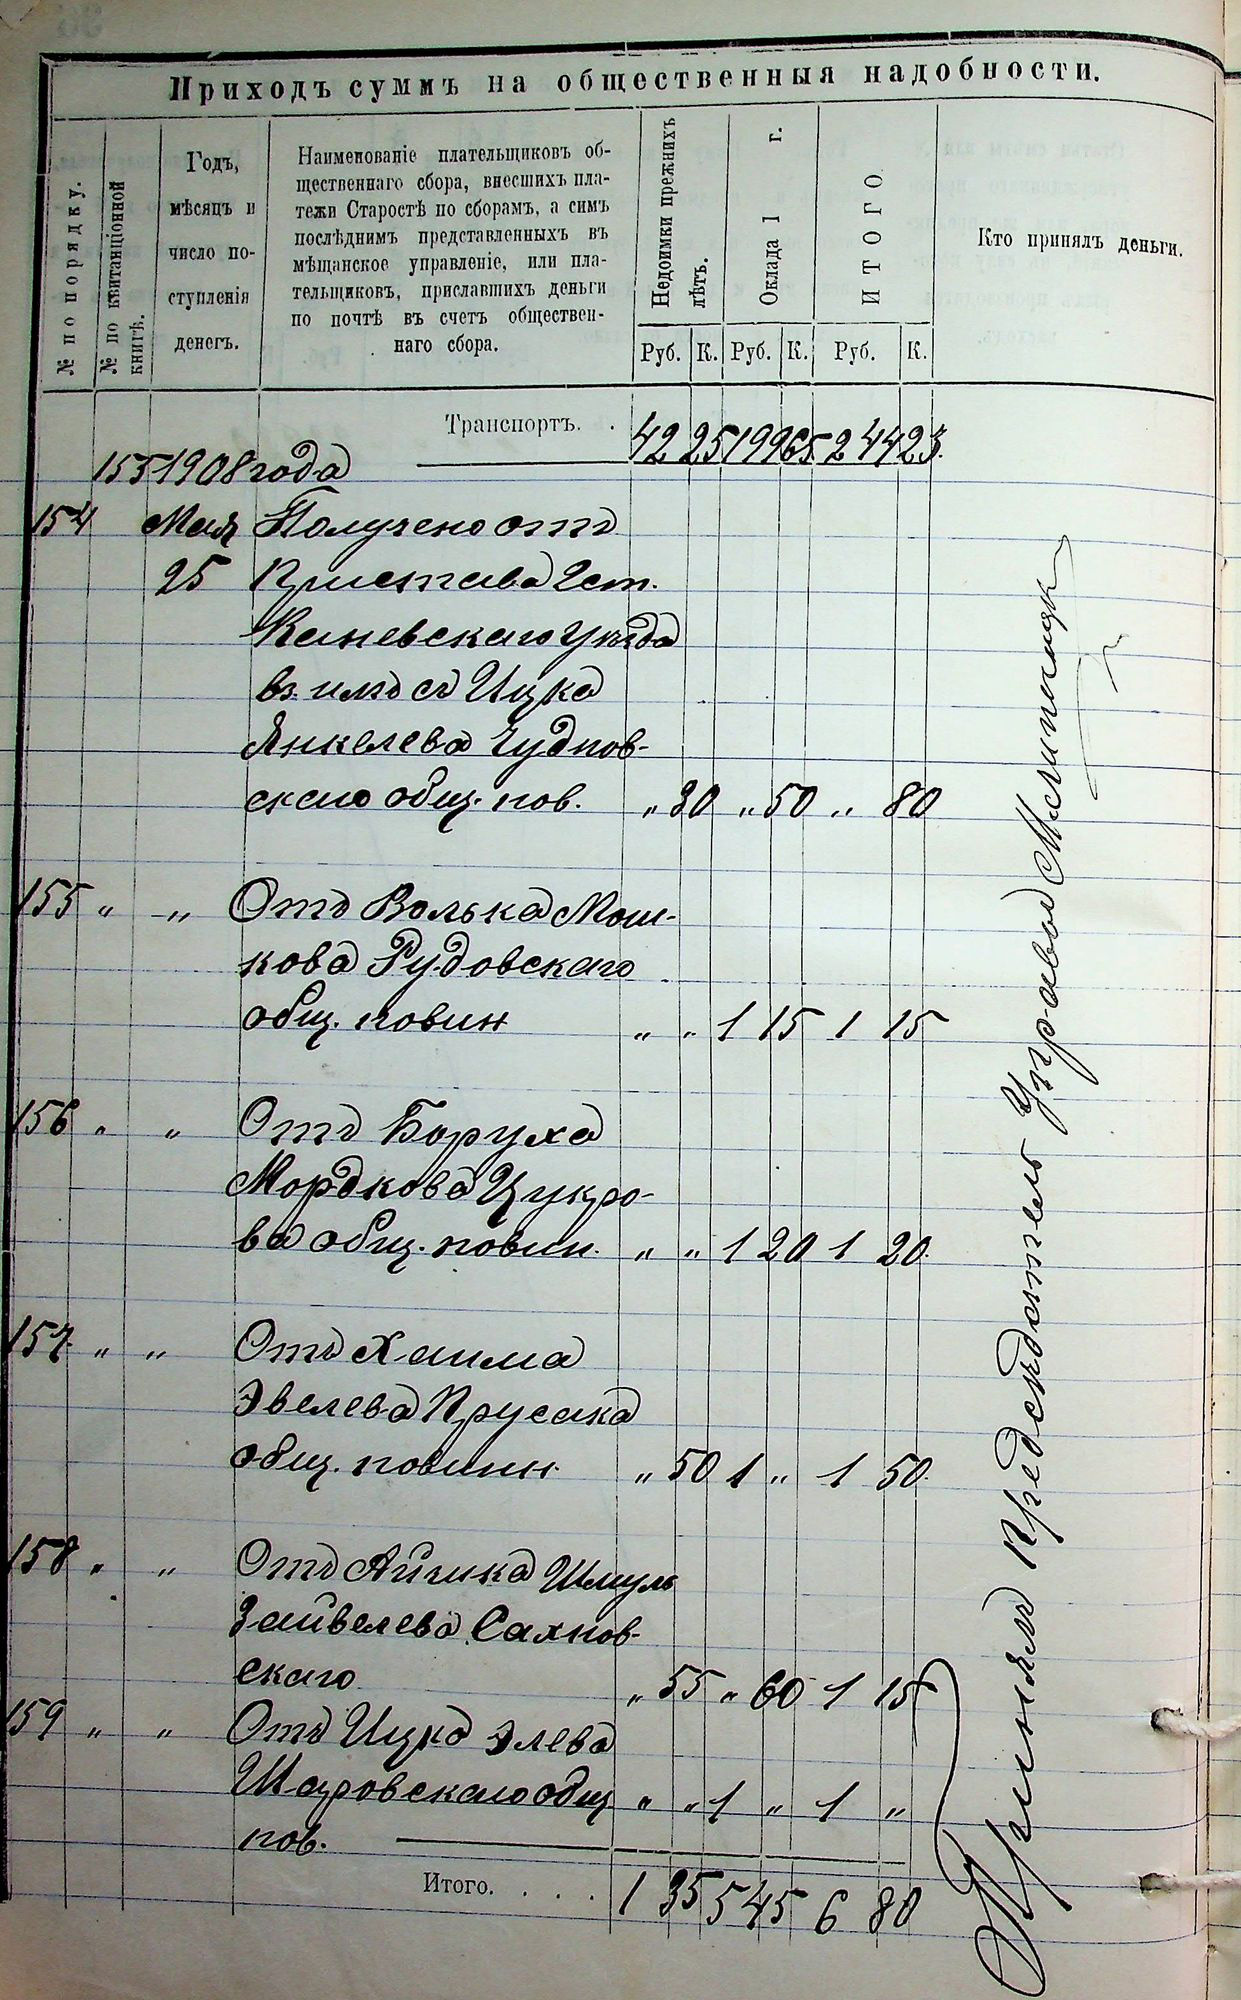 Приходъ суммъ на общественныя надобности.
№ по порядку.
№ по квитанціонной
книгѣ.
Годъ,
мѣсяцъ и
число по-
ступленія
денегъ.
Наименованіе плательщиковъ об-
щественнаго сбора, внесшихъ пла-
тежи Старостѣ по сборамъ, а симъ
послѣднимъ представленныхъ въ
мѣщанское управленіе, или пла-
тельщиковъ, приславшихъ деньги
по почтѣ въ счетъ обществен-
наго сбора.
Недоимки прежнихъ
лѣтъ.
Оклада 1 г.
ИТОГО
Кто принялъ деньги.
Руб. К. Руб. К. Руб. К.
Транспортъ. . 42 25 199 65 244 23.
155 1908 года
154 Мая Получено отъ
25 Пристава 2 ст.
Каневскаго Уѣзда
вз. имъ съ Ицка
Янкелева Чуднов-
скаго общ. пов. „ 30 „ 50 „ 80
155 „ „ Отъ Волька Мош-
кова Рудовскаго
общ. повин „ „ 1 15 1 15
156 „ „ Отъ Боруха
Мордкова Цукро-
ва общ. повин. „ „ 1 20 1 20.
157. „ „ Отъ Хаима
Эвелева Прусака
общ. повинн. „ 50 1 „ 1 50.
158 „ „ Отъ Айзика Шмуль
Зайвелева Сахнов-
скаго „ 55 „ 60 1 15
159 „ „ Отъ Ицка Элева
Шаровскаго общ
пов. „ „ 1 „ 1 „
Итого. . . . 1 35 5 45 6 80
Принялъ Предсѣдатель Управы